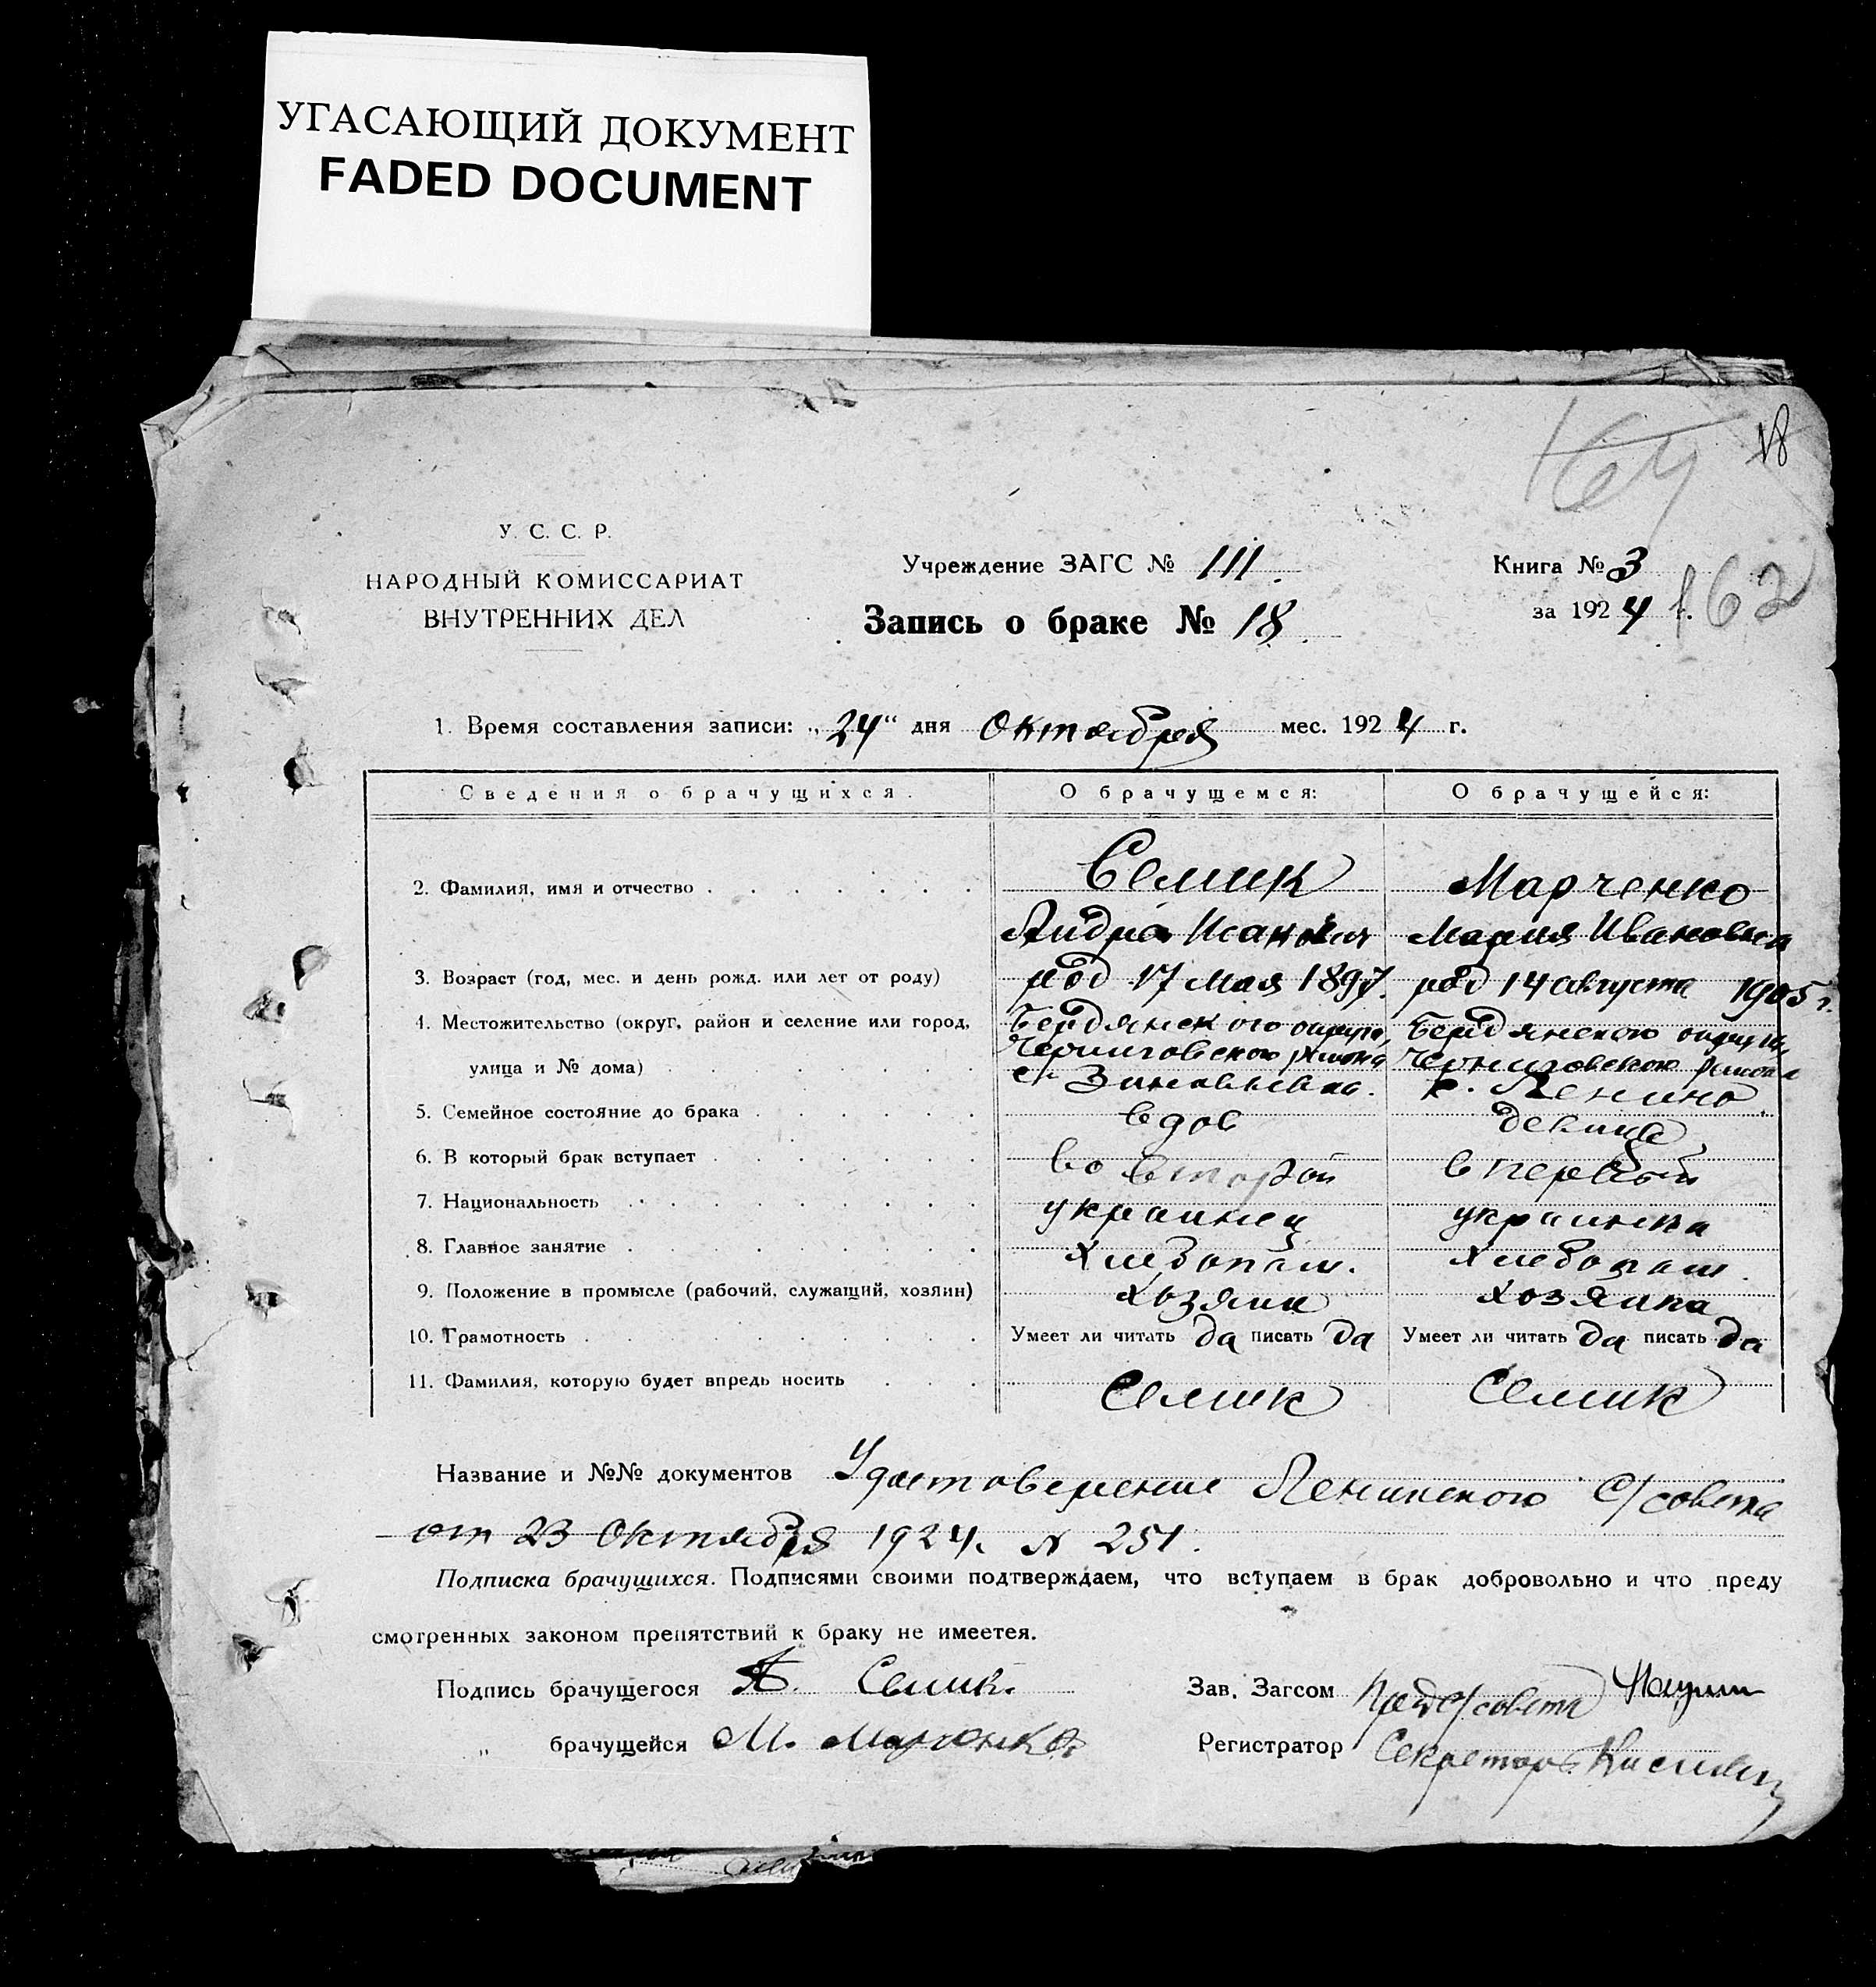 УГАСАЮЩИЙ ДОКУМЕНТ
FADED DOCUMENT
18
164
У. С. С. Р.
НАРОДНЫЙ КОМИССАРИАТ
ВНУТРЕННИХ ДЕЛ
Учреждение ЗАГС № 111.
Запись о браке № 18.
Книга № 3
за 1924 г.
162
1. Время составления записи: „24" дня октября мес. 1924 г.
Сведения о брачущихся. О брачущемся: О брачущейся:
2. Фамилия, имя и отчество Семик Марченко
Мария Ивановна
3. Возраст (год, мес. и день рожд. или лет от роду) род 17 мая 1897. род 14 августа 1905 г.
4. Местожительство (округ, район и селение или город, Бердянского округа, Бердянского округа,
улица и № дома) Черниговского района Черниговского района
с. Ленино
5. Семейное состояние до брака вдов девица
6. В который брак вступает во второй в первый
7. Национальность украинец украинка
8. Главное занятие хлебопаш. хлебопаш.
9. Положение в промысле (рабочий, служащий, хозяин) хозяин хозяйка
10. Грамотность Умеет ли читать да писать да Умеет ли читать да писать да
11. Фамилия, которую будет впредь носить Семик Семик
Название и №№ документов Удостоверение Ленинского с/совета
от 23 октября 1924. N 251.
Подписка брачущихся. Подписями своими подтверждаем, что вступаем в брак добровольно и что преду
смотренных законом препятствий к браку не имеетея.
Подпись брачущегося А. Семик.
Зав. Загсом Пред с/совета
„ брачущейся М. Марченко
Регистратор Секретарь